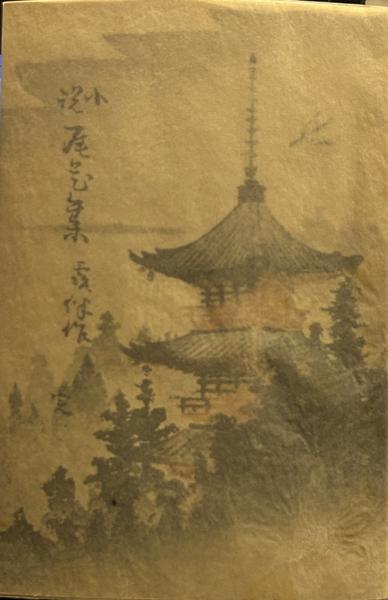 小説 尾花集 露伴作 完